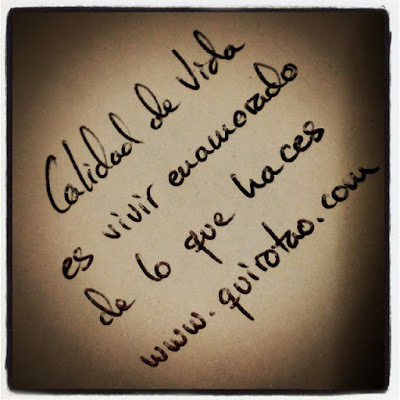 Calidad de Vida
es vivir enamorado
de lo que haces
www.quirotao.com